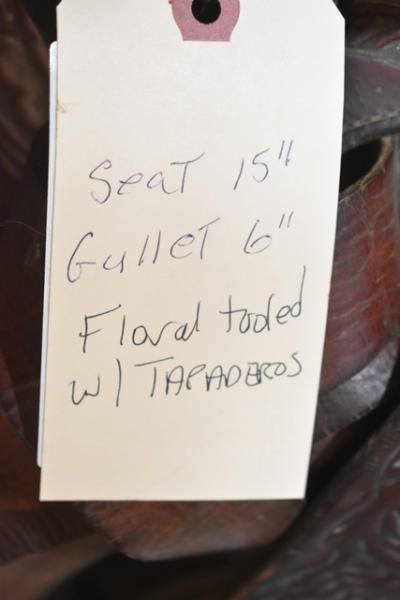 Seat 15"
Gullet 6"
Floral tooled
w/ TAPADEROS